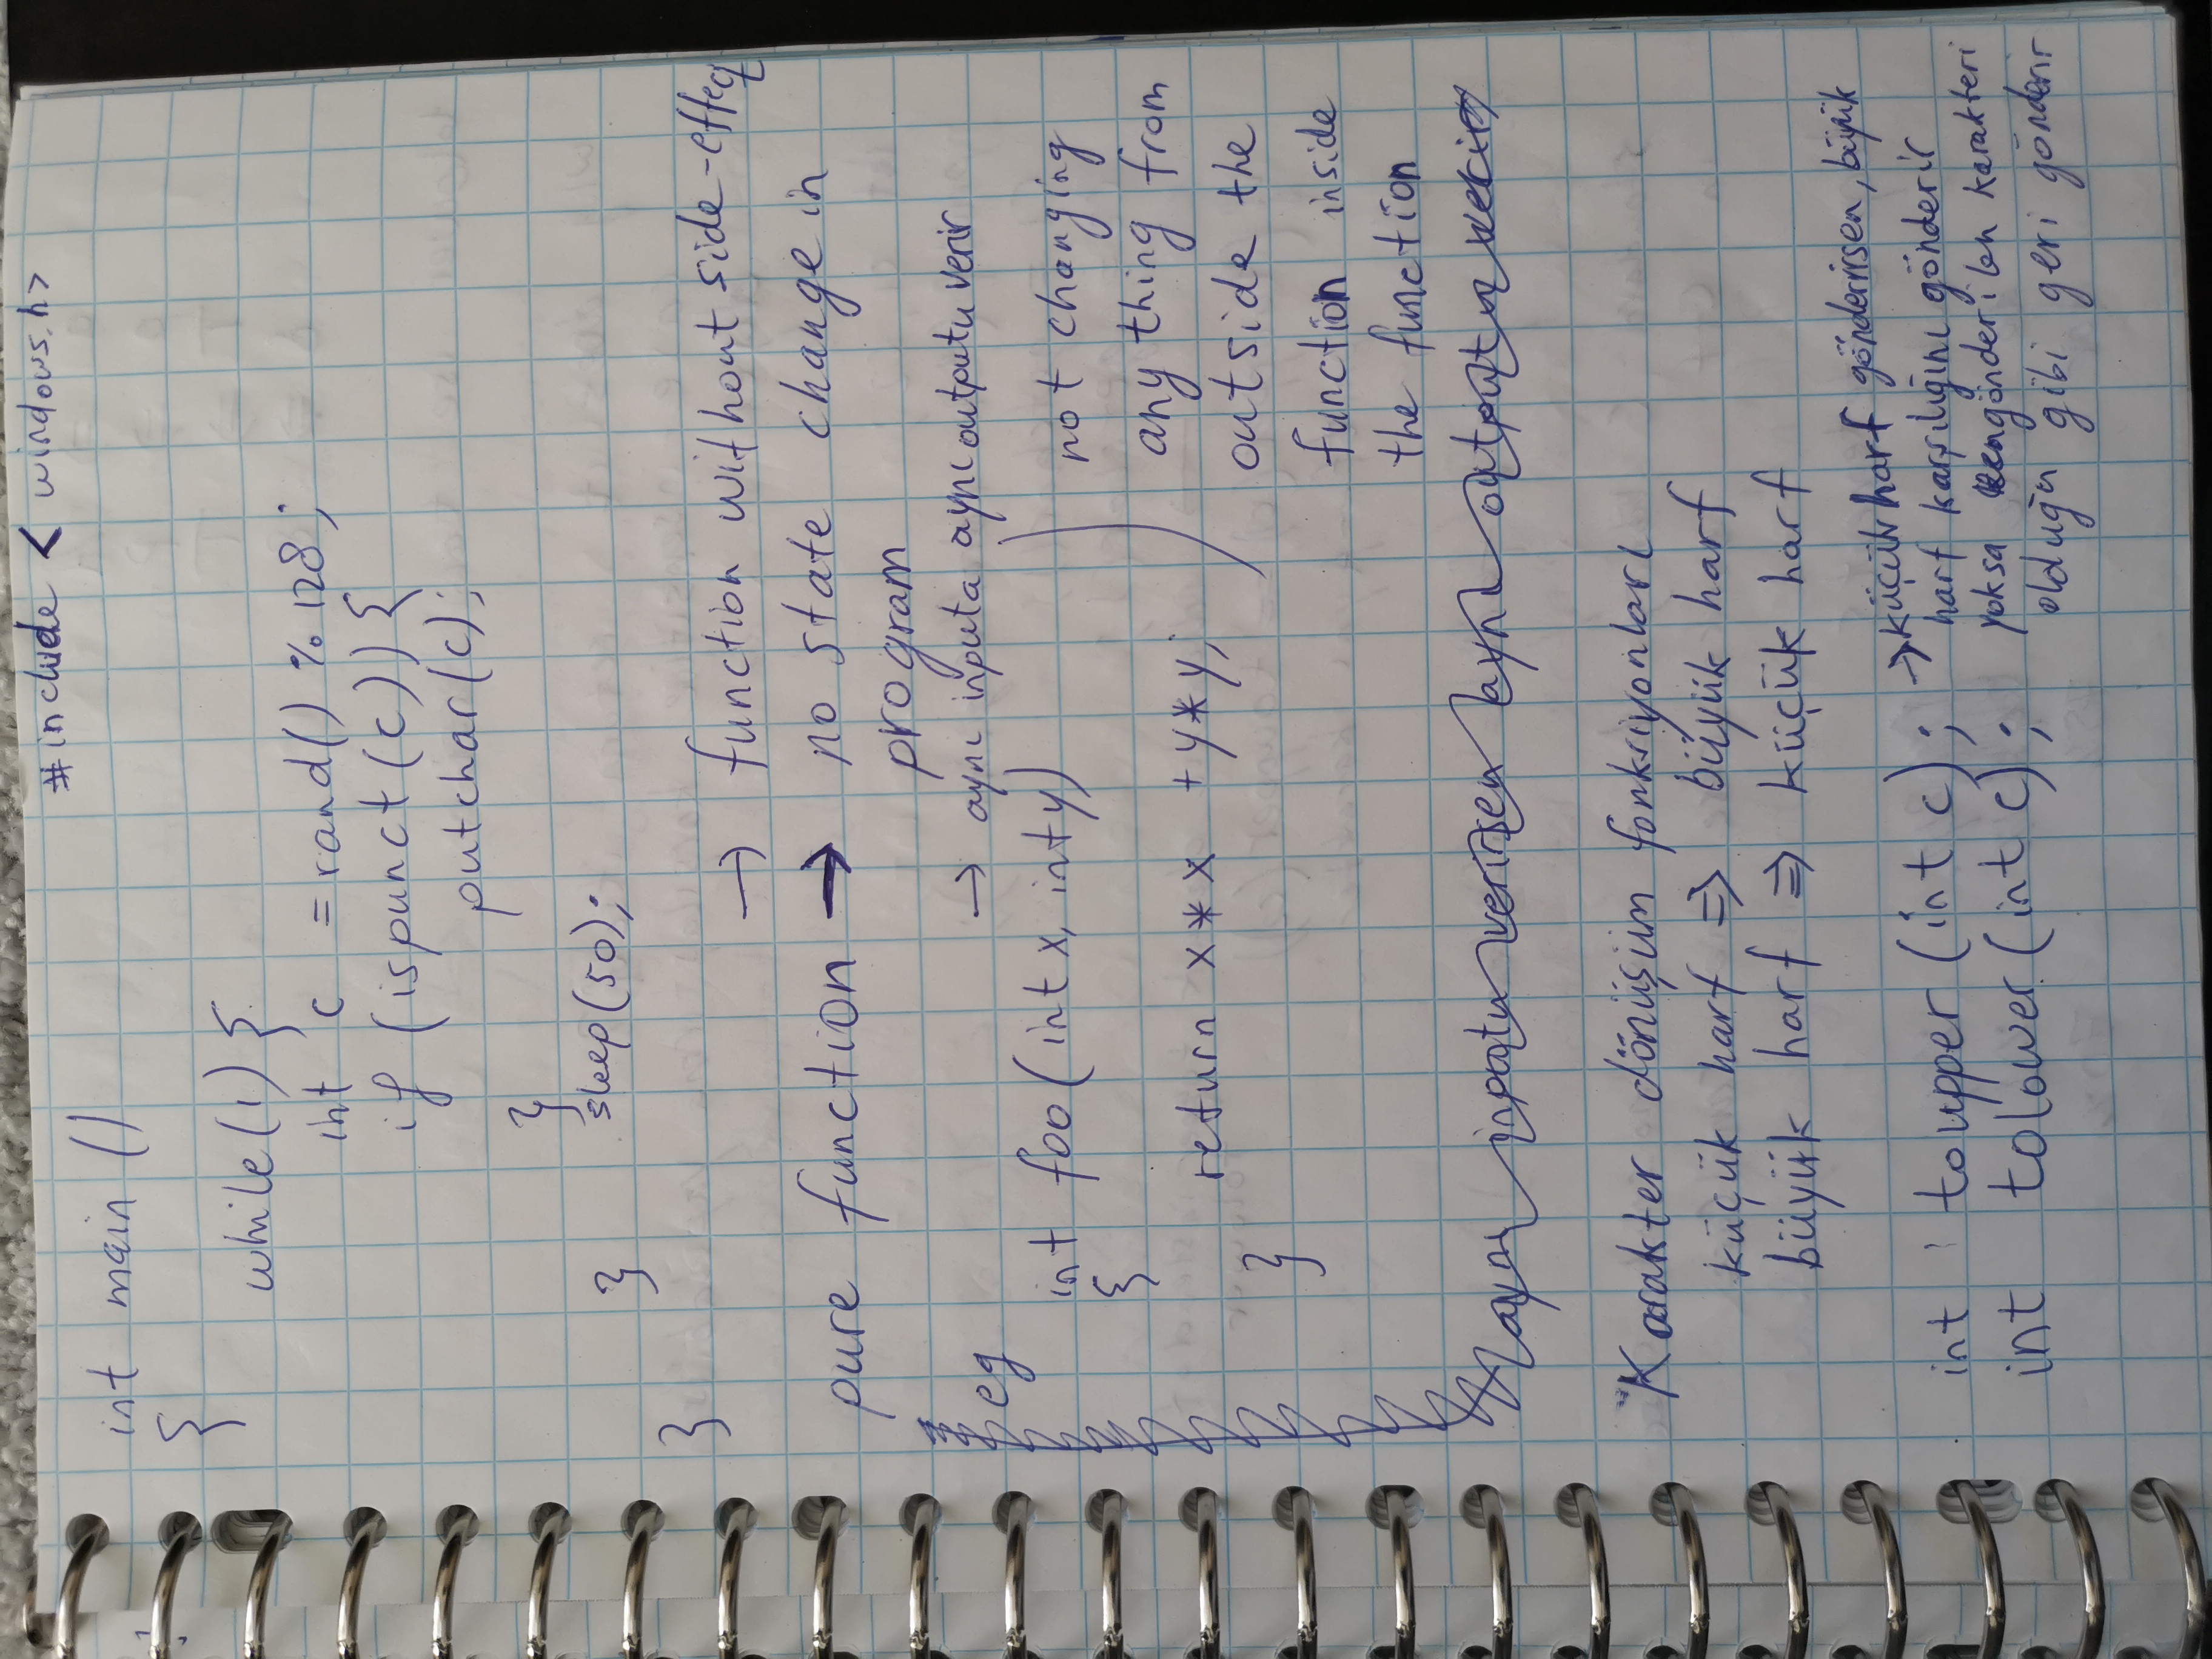 #include < windows.h>
int main ()
{
while(1) {
int c = rand() % 128;
if (ispunct(c)) {
putchar(c);
}
sleep(50);
}
}
→ function without side-effeq
pure function → no state change in
program
→ aynı inputa aynı outputu verir
eg
int foo(int x, int y)
{
return x*x + y*y;
}
not changing
any thing from
outside the
function inside
the function
aynı inputu verirsen aynı outputu verir
Karakter dönüşüm fonksiyonları
küçük harf ⇒ büyük harf
büyük harf ⇒ küçük harf
int toupper (int c);
int tolower (int c);
→ küçük harf gönderirsen, büyük
harf karşılığını gönderir
yoksa gönderilen karakteri
olduğu gibi geri gönderir